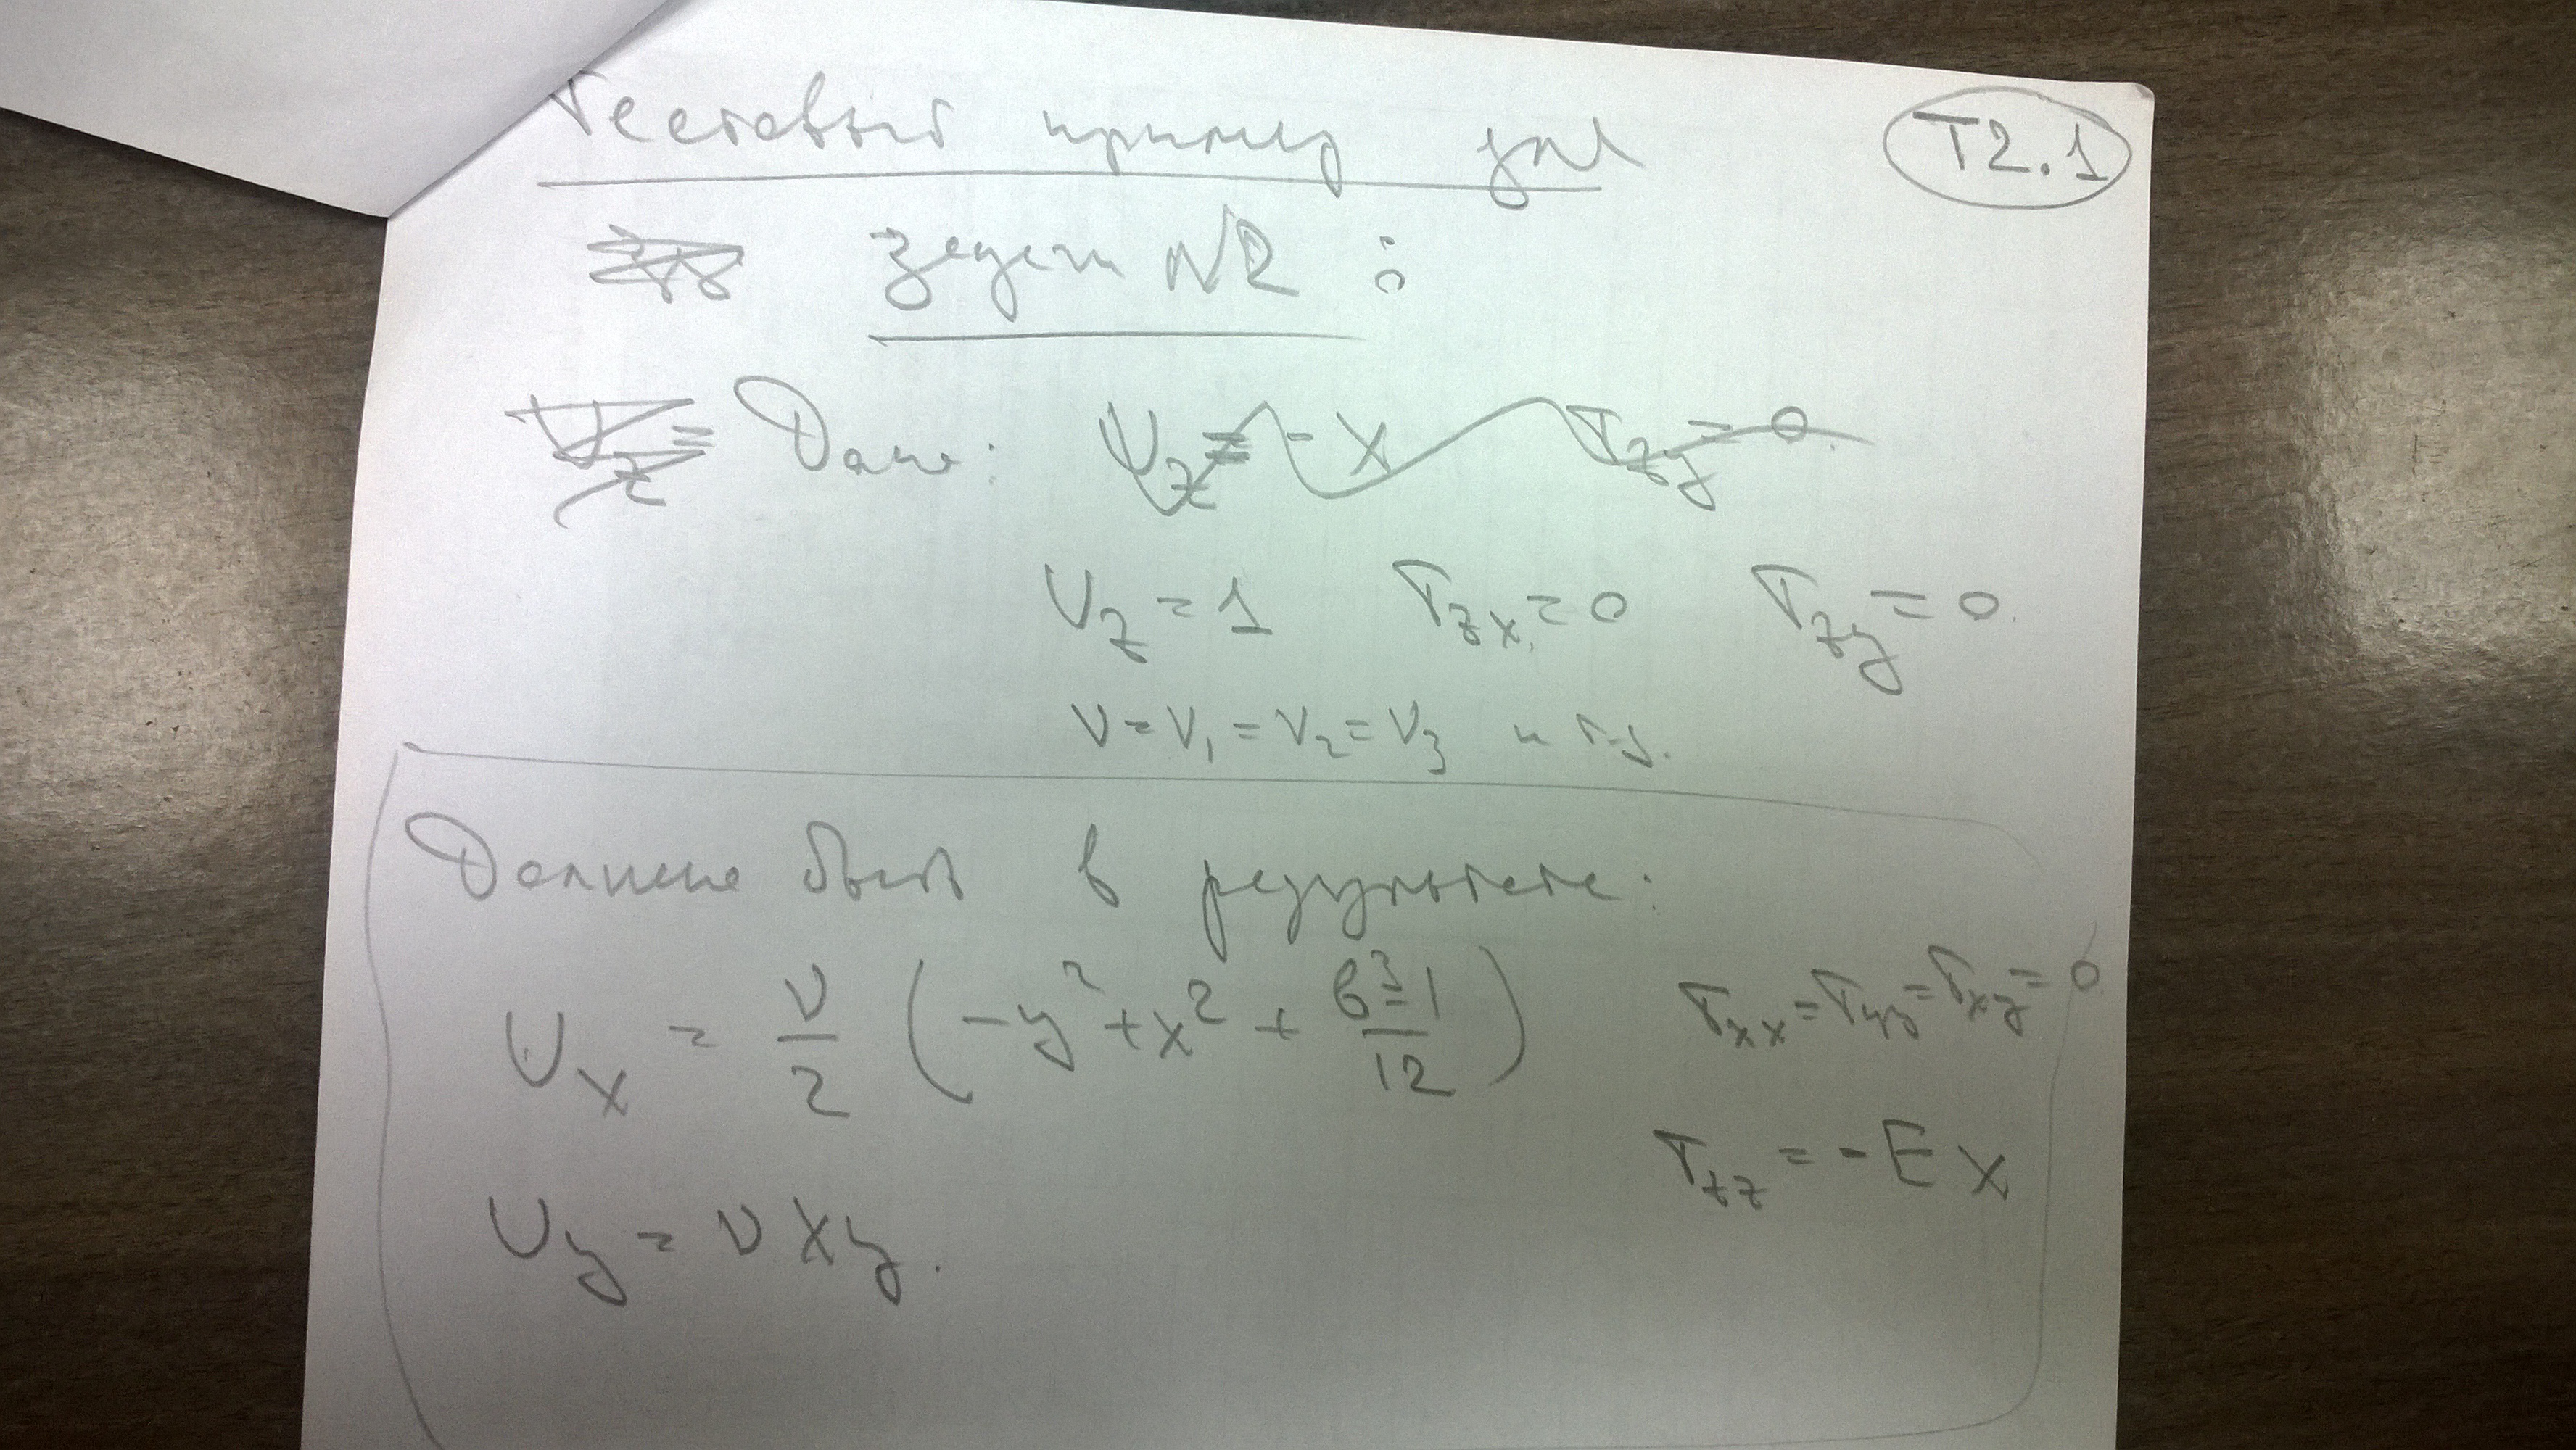 Тестовый пример для
T2.1
задачи N2 :
Дано: U_z = -x τ_zy = 0.
U_z = 1 τ_zx = 0 τ_zy = 0.
ν = ν_1 = ν_2 = ν_3 и т.д.
Должно быть в результате:
U_x = ν/2 (-y² + x² + (b²-1)/12) τ_xx = τ_yy = τ_xy = 0
τ_zz = -E x
U_y = ν x y.